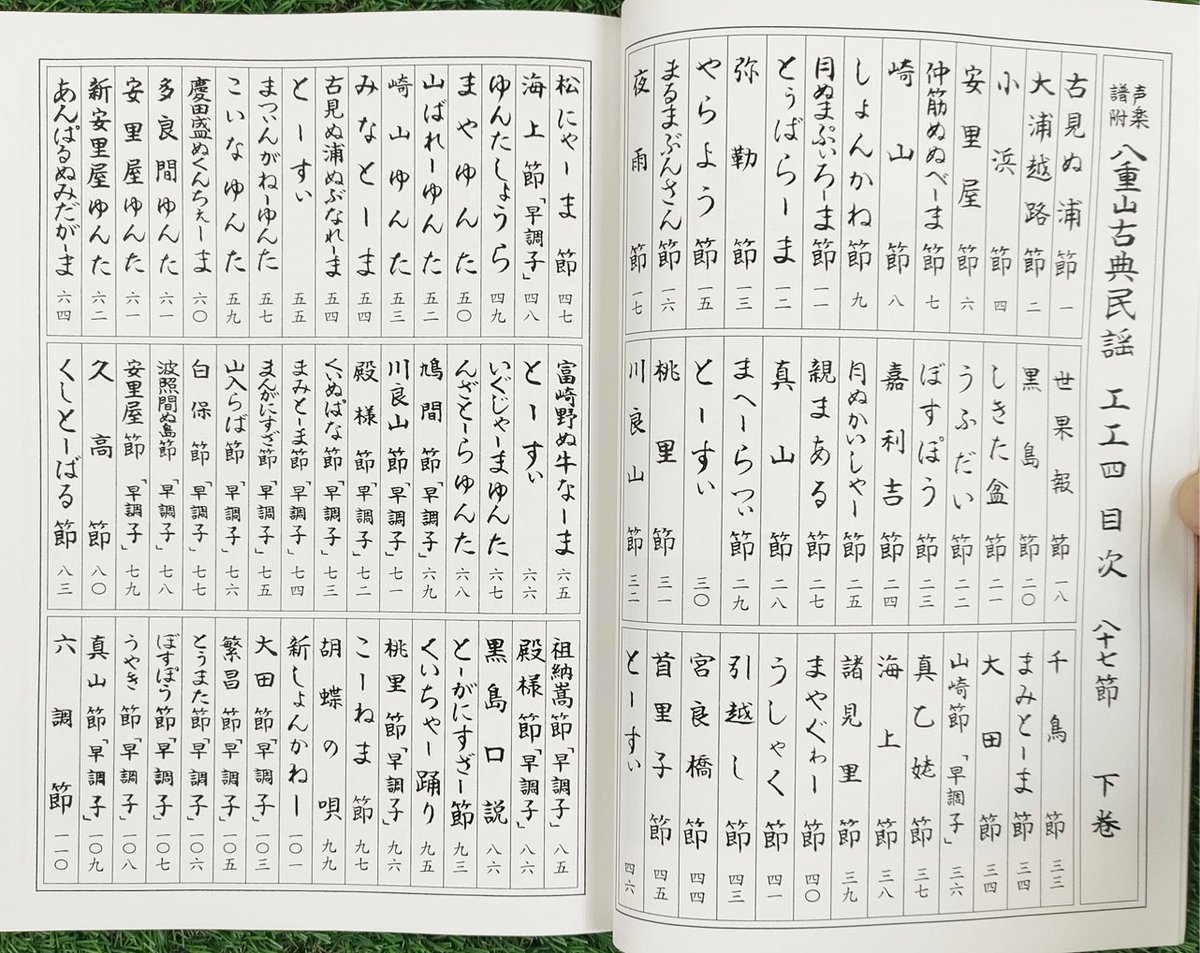 声楽譜附 八重山古典民謡 工工四 目次 八十七節 下巻
古見ぬ浦節 一
大浦越路節 二
小浜節 四
安里屋節 六
仲筋ぬぬべーま節 七
崎山節 八
しょんかね節 九
月ぬまぷぃろーま節 一一
とぅばらーま 一二
弥勒節 一三
やらよう節 一五
まるまぶんさん節 一六
夜雨節 一七
世果報節 一八
黒島節 二〇
しきた盆 二一
うふだい節 二二
ぼすぽう節 二三
嘉利吉節 二四
月ぬかいしゃー節 二五
親まある節 二七
真山節 二八
まへーらつぃ節 二九
とーすぃ 三〇
桃里節 三一
川良山節 三二
千鳥節 三三
まみとーま節 三四
大田節 三四
山崎節「早調子」 三六
真乙姥節 三七
海上節 三八
諸見里節 三九
まやぐゎー 四〇
うしゃく節 四一
引越し節 四三
宮良橋節 四四
首里子節 四五
とーすぃ 四六
松にゃーま節 四七
海上節「早調子」 四八
ゆんたしょうら 四九
まやゆんた 五〇
山ばれーゆんた 五二
崎山ゆんた 五三
みなとーま 五四
古見ぬ浦ぬぶなれーま 五四
とーすぃ 五五
まついんがねーゆんた 五七
こいなゆんた 五九
慶田盛ぬくんちぇーま 六〇
多良間ゆんた 六一
安里屋ゆんた 六一
新安里屋ゆんた 六二
あんぱるぬみだがーま 六四
富崎野ぬ牛なーま 六五
とーすぃ 六六
いぐじゃーまゆんた 六七
んざとーらゆんた 六八
鳩間節「早調子」 六九
川良山節「早調子」 七一
殿様節「早調子」 七二
くいぬぱな節「早調子」 七三
まみとーま節「早調子」 七四
まんがにすざ節「早調子」 七五
山入らば節「早調子」 七六
白保節「早調子」 七七
波照間ぬ島節「早調子」 七八
安里屋節「早調子」 七九
久高節 八〇
くしとーばる節 八三
祖納嵩節「早調子」 八五
殿様節「早調子」 八六
黒島口説 八六
とーがにすざー節 九三
くいちゃー踊り 九五
桃里節「早調子」 九六
こーねま節 九七
胡蝶の唄 九九
新しょんかねー 一〇一
大田節「早調子」 一〇三
繁昌節「早調子」 一〇五
とぅまた節「早調子」 一〇六
ぼすぽう節「早調子」 一〇七
うやき節「早調子」 一〇八
真山節「早調子」 一〇九
六調節 一一〇